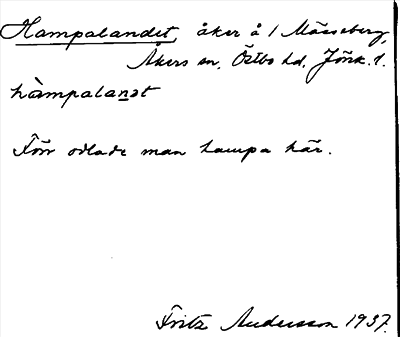 Hampalandet, åker å 1 Mässeberg,
Åkers sn, Östbo hd, Jönk. l.
hàmpalanət
Förr odlade man hampa här.
Fritz Andersson 1937.